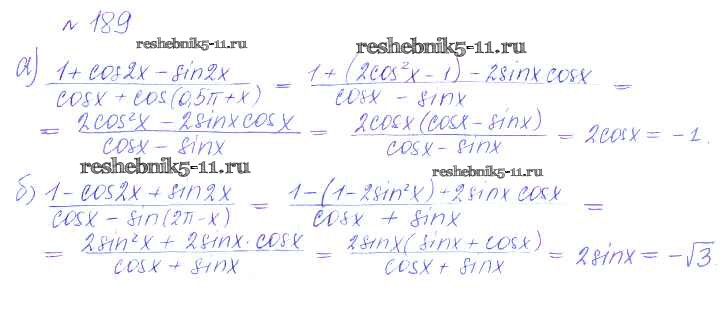 № 189
reshebnik5-11.ru
reshebnik5-11.ru
а) (1+cos2x−sin2x)/(cosx+cos(0,5π+x)) = (1+(2cos²x−1)−2sinxcosx)/(cosx−sinx) =
= (2cos²x−2sinxcosx)/(cosx−sinx) = (2cosx(cosx−sinx))/(cosx−sinx) = 2cosx = −1.
reshebnik5-11.ru
reshebnik5-11.ru
б) (1−cos2x+sin2x)/(cosx−sin(2π−x)) = (1−(1−2sin²x)+2sinxcosx)/(cosx+sinx) =
= (2sin²x+2sinx·cosx)/(cosx+sinx) = (2sinx(sinx+cosx))/(cosx+sinx) = 2sinx = −√3.